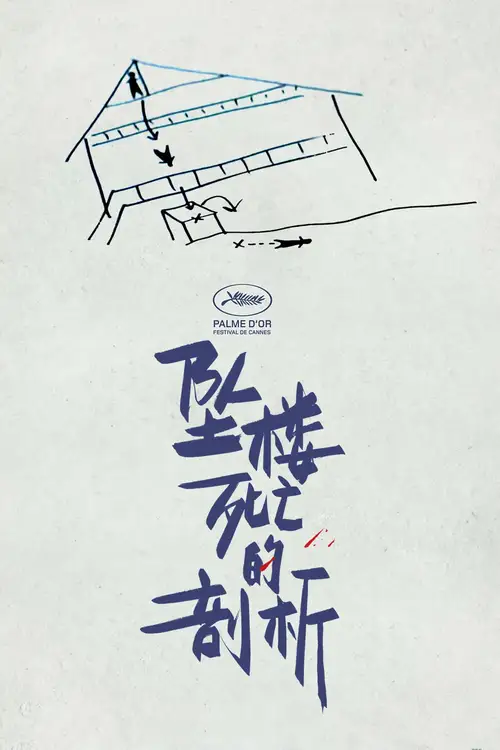 PALME D'OR
FESTIVAL DE CANNES
坠楼
死亡
的
剖析